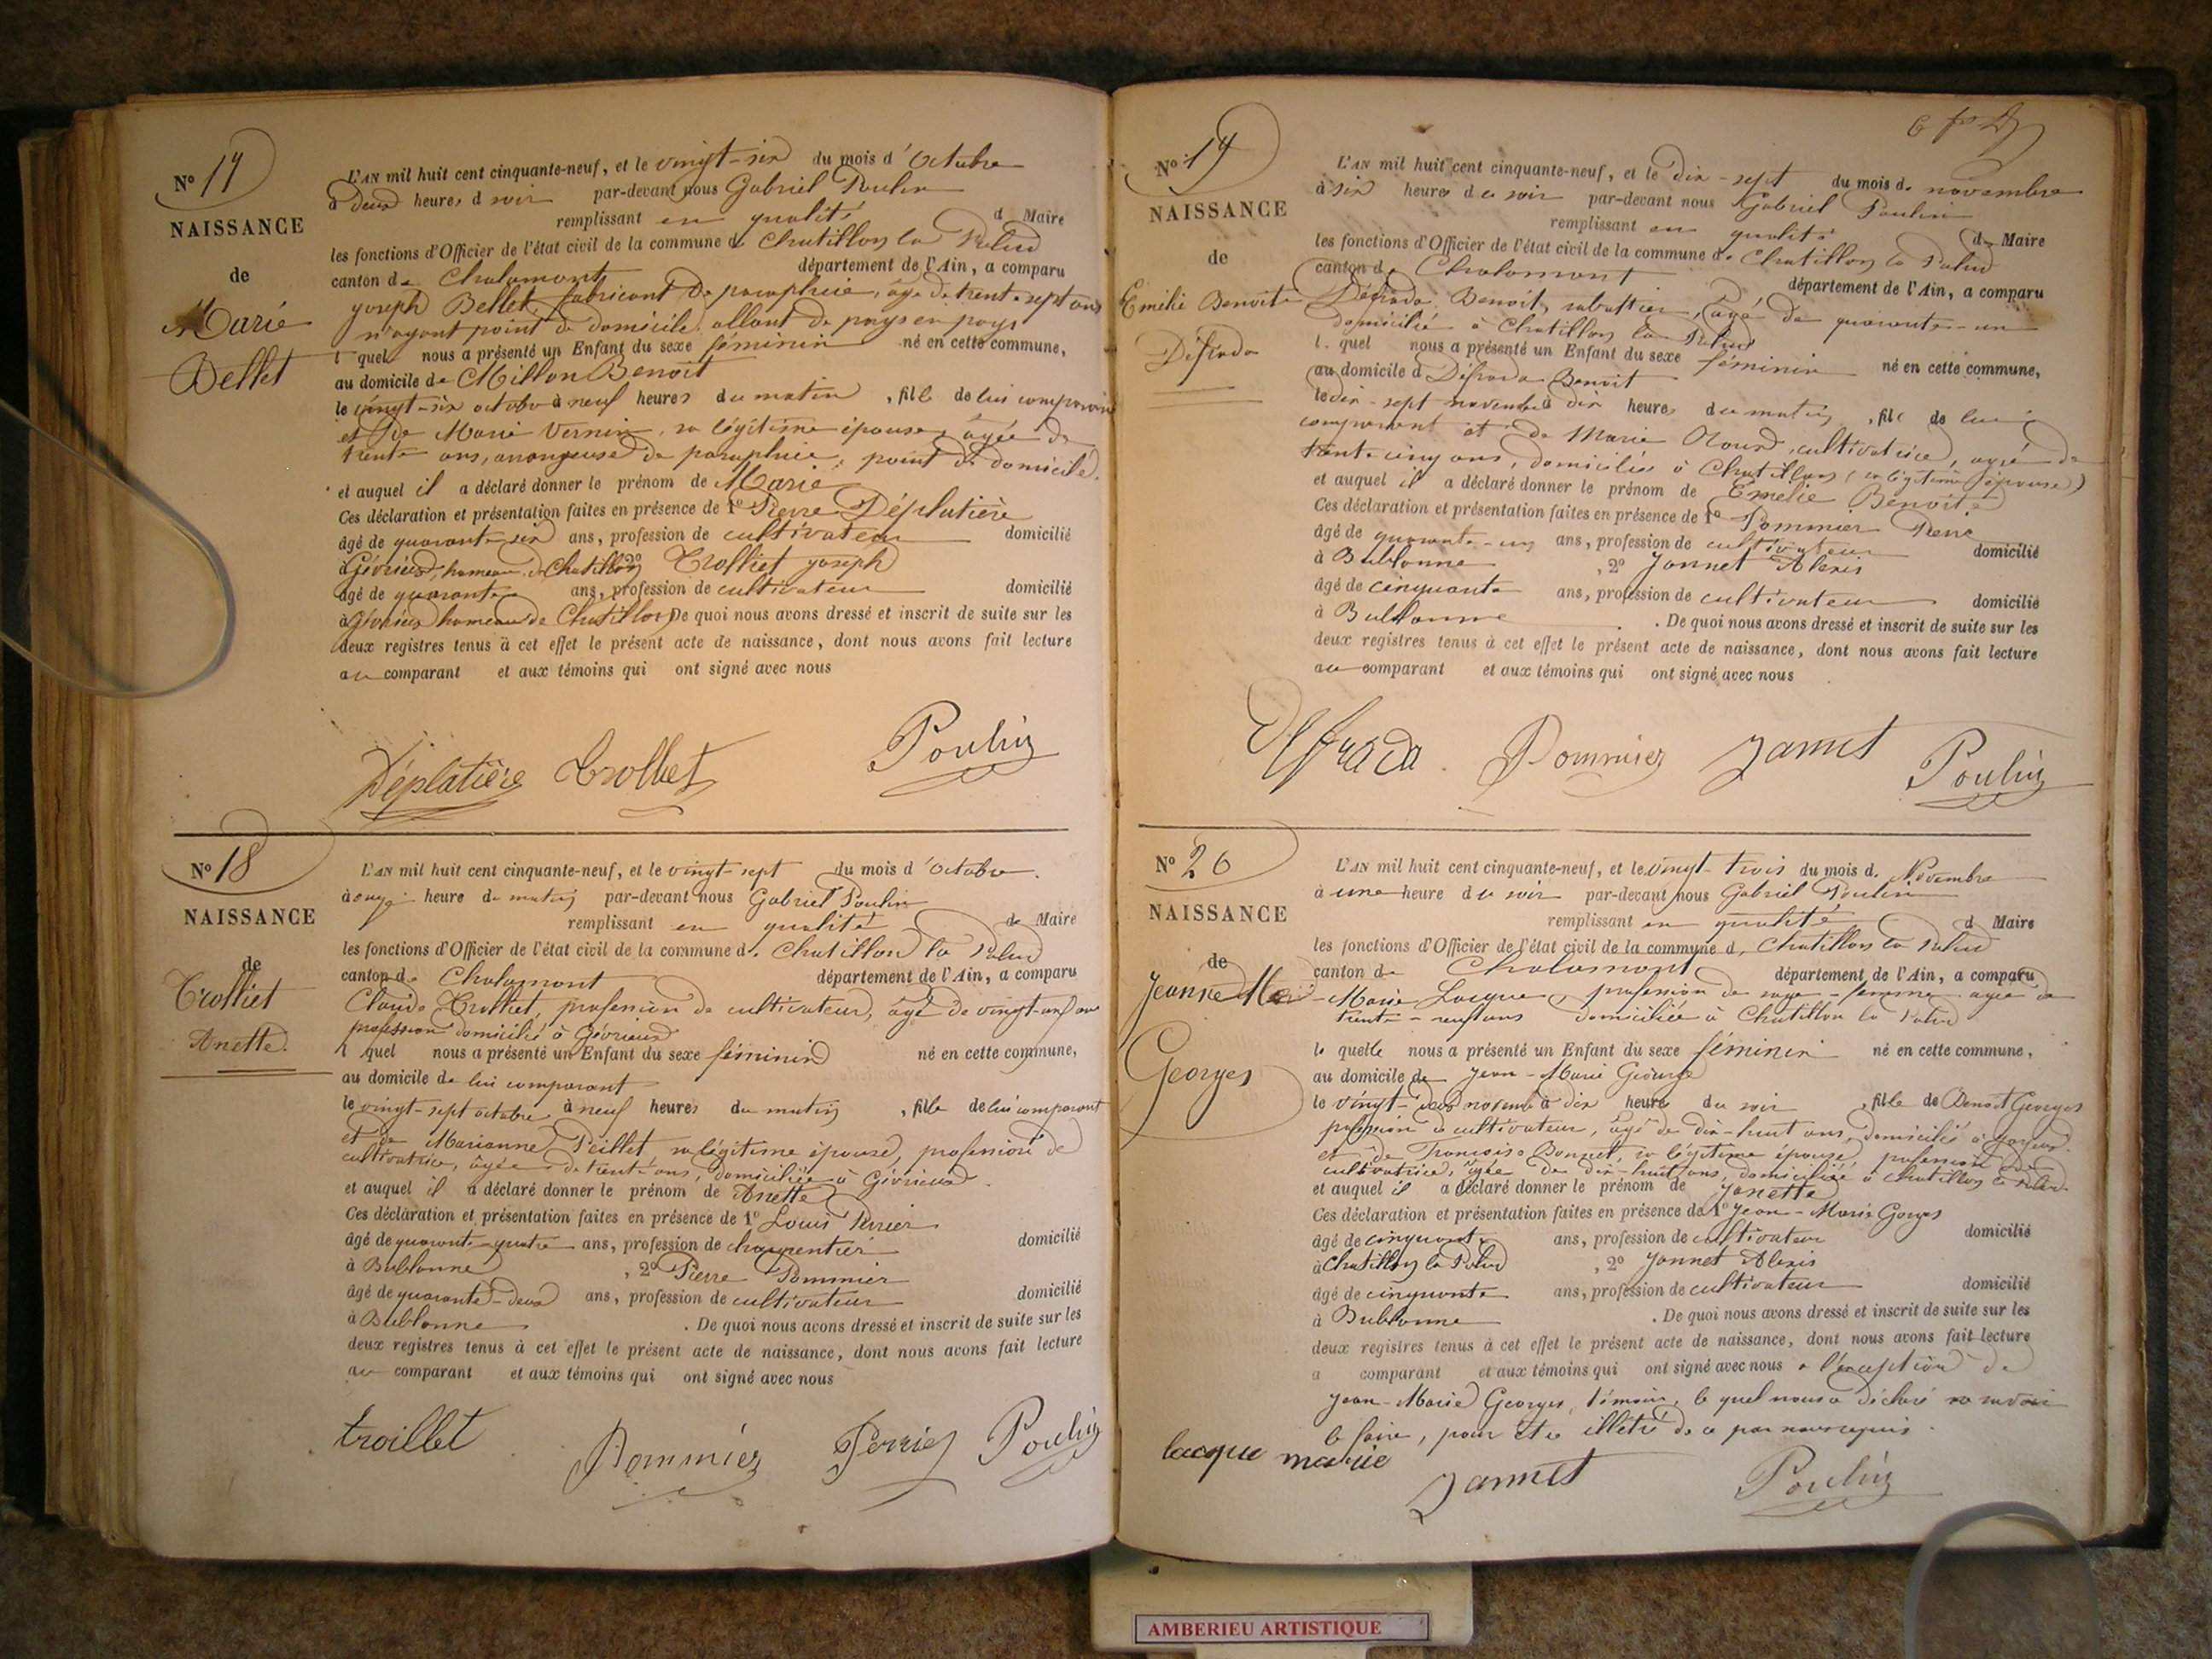 N° 17
NAISSANCE
de
Marie
Bellet
L'AN mil huit cent cinquante-neuf, et le vingt-six du mois d'Octobre
à Deux heures d soir par-devant nous Gabriel Poulin
remplissant en qualité d Maire
les fonctions d'Officier de l'état civil de la commune de Chatillon la Palud
canton de Chalamont département de l'Ain, a comparu
joseph Bellet, fabricant de parapluie, âgé de trente sept ans
n'ayant point de domicile allant de pays en pays
l quel nous a présenté un Enfant du sexe féminin né en cette commune,
au domicile de Millon Benoit
le vingt-six octobre à neuf heures du matin, fille de lui comparant
et de Marie Vernin, sa légitime épouse, âgée de
trente ans, arrangeuse de parapluie, point de domicile.
et auquel il a déclaré donner le prénom de Marie
Ces déclaration et présentation faites en présence de 1° Pierre Déplatière
âgé de quarante six ans, profession de cultivateur domicilié
à Gévrieux, hameau de Chatillon 2° Trolliet joseph
âgé de quarante ans, profession de cultivateur domicilié
à Gévrieux hameau de Chatillon De quoi nous avons dressé et inscrit de suite sur les
deux registres tenus à cet effet le présent acte de naissance, dont nous avons fait lecture
au comparant et aux témoins qui ont signé avec nous
Déplatière Trolliet Poulin
N° 18
NAISSANCE
de
Trolliet
Anette.
L'AN mil huit cent cinquante-neuf, et le vingt-sept du mois d'octobre.
à onze heure du matin par-devant nous Gabriel Poulin
remplissant en qualité de Maire
les fonctions d'Officier de l'état civil de la commune d. Chatillon la Palud
canton d. Chalamont département de l'Ain, a comparu
Claude Trolliet, profession de cultivateur, âgé de vingt-neuf ans
profession domicilié à Gévrieux
l quel nous a présenté un Enfant du sexe féminin né en cette commune,
au domicile de lui comparant
le vingt-sept octobre à neuf heures du matin, fille de lui comparant
et de Marianne Peillet, sa légitime épouse, profession de
cultivatrice, âgée de trente ans, domiciliée à Gévrieux.
et auquel il a déclaré donner le prénom de Anette
Ces déclaration et présentation faites en présence de 1° Louis Perrier
âgé de quarante-quatre ans, profession de charpentier domicilié
à Bublanne, 2° Pierre Pommier
âgé de quarante-deux ans, profession de cultivateur domicilié
à Bublanne. De quoi nous avons dressé et inscrit de suite sur les
deux registres tenus à cet effet le présent acte de naissance, dont nous avons fait lecture
au comparant et aux témoins qui ont signé avec nous
troillet Pommier Perrier Poulin
N° 19
NAISSANCE
de
Emélie Benoite
Défrada
L'AN mil huit cent cinquante-neuf, et le Dix-sept du mois d. novembre
à six heures du soir par-devant nous Gabriel Poulin
remplissant en qualité d. Maire
les fonctions d'Officier de l'état civil de la commune d. Chatillon la Palud
canton d. Chalamont département de l'Ain, a comparu
Défrada Benoit, sabottier, âgé de quarante-un
domicilié à Chatillon la Palud
l. quel nous a présenté un Enfant du sexe féminin né en cette commune,
au domicile d Défrada Benoit
le dix-sept novembre à dix heures du matin, fill de lui
comparant et de Marie cultivatrice, agée de
trente-cinq ans, domiciliée à Chatillon (sa légitime épouse)
et auquel il a déclaré donner le prénom de Emelie Benoite
Ces déclaration et présentation faites en présence de 1° Pommier Pierre
âgé de quarante-un ans, profession de cultivateur domicilié
à Bublanne, 2° Jannet Alexis
âgé de cinquante ans, profession de cultivateur domicilié
à Bublanne. De quoi nous avons dressé et inscrit de suite sur les
deux registres tenus à cet effet le présent acte de naissance, dont nous avons fait lecture
au comparant et aux témoins qui ont signé avec nous
Defrada Pommier Jannet Poulin
N° 20
NAISSANCE
de
Jeanne Marie
Georges
L'AN mil huit cent cinquante-neuf, et le vingt-trois du mois d. Novembre
à une heure du soir par-devant nous Gabriel Poulin
remplissant en qualité d Maire
les fonctions d'Officier de l'état civil de la commune d. Chatillon la Palud
canton de Chalamont département de l'Ain, a comparu
Marie Lacque, profession de sage-femme agée de
trente-neuf ans domiciliée à Chatillon la Palud
la quelle nous a présenté un Enfant du sexe féminin né en cette commune,
au domicile de Jean-Marie George
le vingt-deux novemb à dix heures du soir, fille de Benoit Georges
profession de cultivateur, âgé de dix-huit ans, domicilié à
et de Françoise Bonnet, sa légitime épouse, profession de
cultivatrice, âgée de dix-huit ans, domiciliée à Chatillon la Palud.
et auquel il a déclaré donner le prénom de Janette
Ces déclaration et présentation faites en présence de 1° Jean-Marie Gorges
âgé de cinquante ans, profession de cultivateur domicilié
à Chatillon la Palud, 2° Jannet Alexis
âgé de cinquante ans, profession de cultivateur domicilié
à Bublanne. De quoi nous avons dressé et inscrit de suite sur les
deux registres tenus à cet effet le présent acte de naissance, dont nous avons fait lecture
a comparant et aux témoins qui ont signé avec nous à l'exception de
Jean-Marie Georges, témoin, le quel nous a déclaré ne savoir
le faire, pour être illétré de ce par nous requis.
lacque marie Jannet Poulin
AMBERIEU ARTISTIQUE